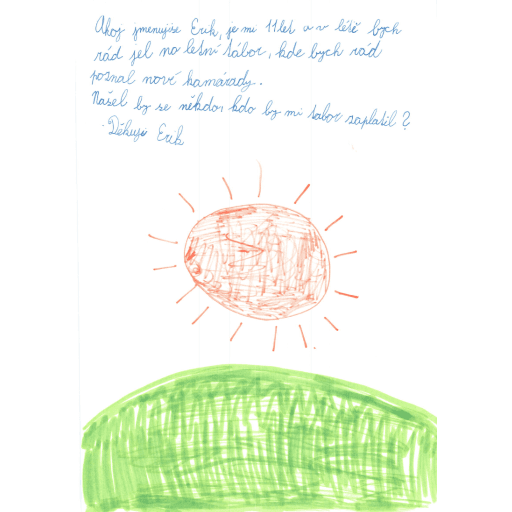 Ahoj jmenujise Erik, je mi 11 let a v létě bych
rád jel na letní tábor, kde bych rád
poznal nové kamárady.
Našel by se někdo, kdo by mi tabor zaplatil?
Děkuji Erik